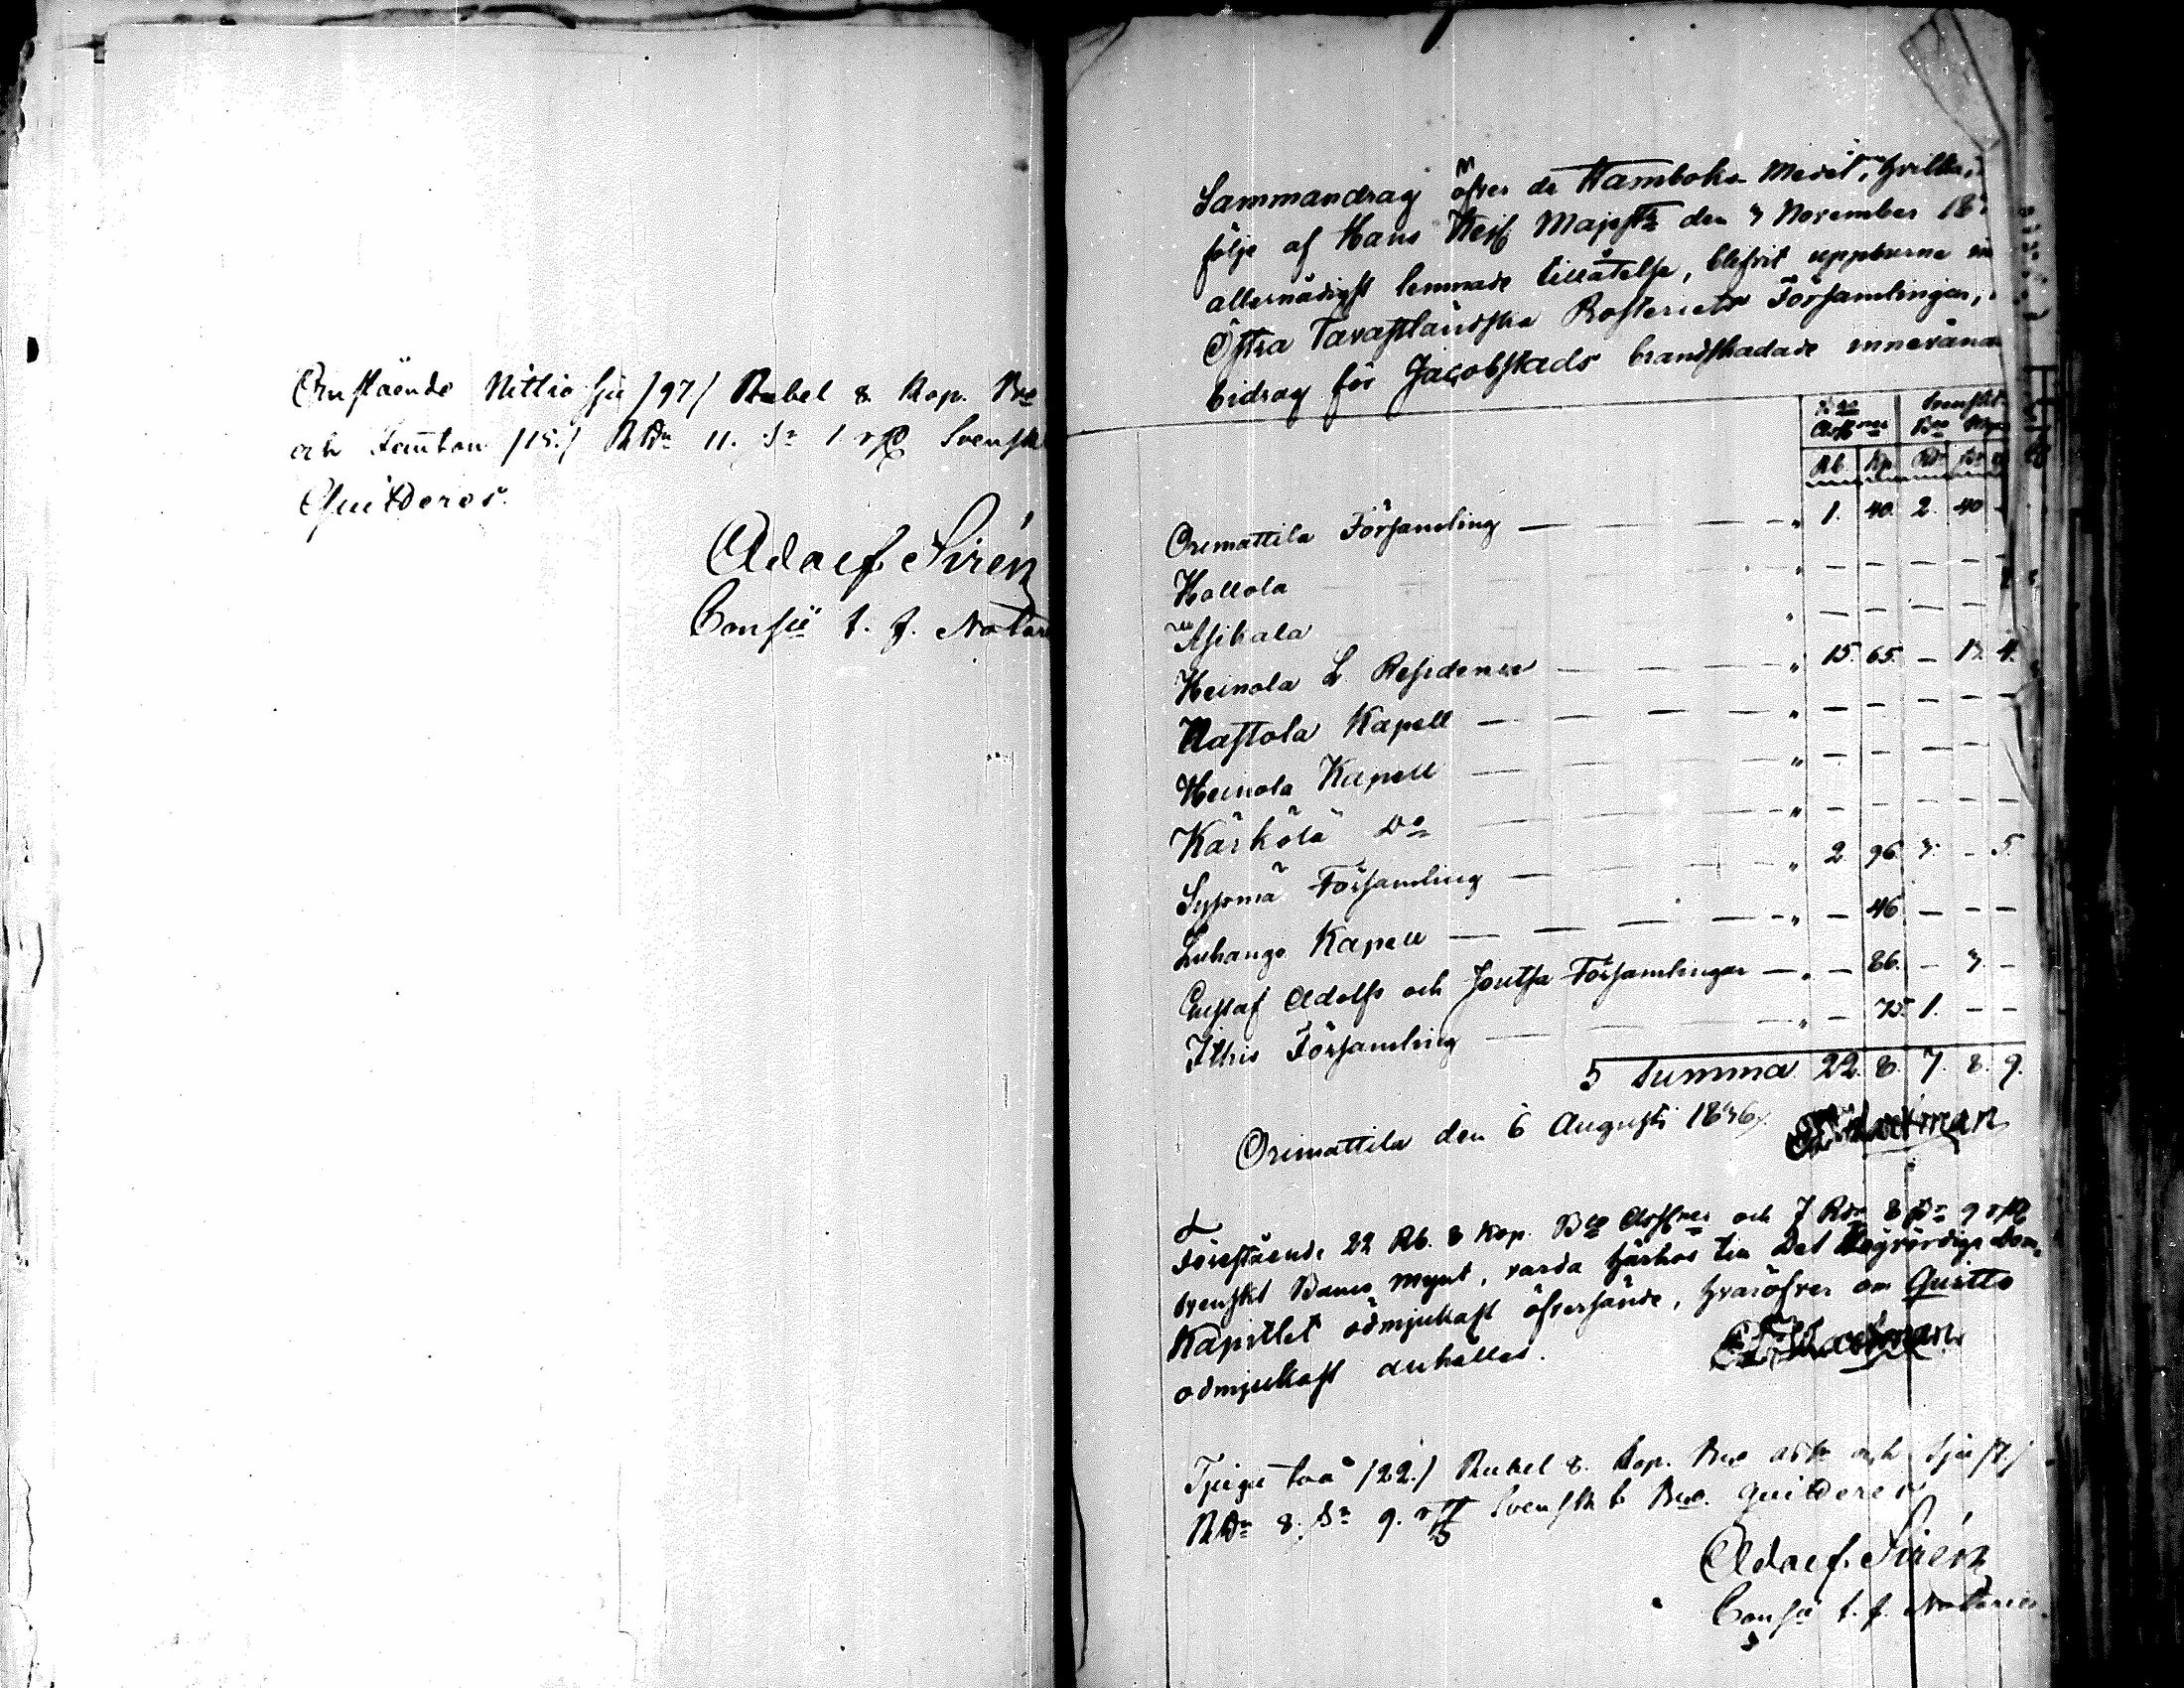 Omstående Nittio sju /97/ Rubel 8. Kop. Bco
och Femton /15./ RDr 11. Sr 1 rst Svenskt
Quitteres.
Adolf Sirén
Cons: t. f. Notarie
Sammandrag öfver de Hamboks Medel, hvilka i
följe af Hans Kejs Majsts den 7 November 18
allernådigst lemnade tillåtelse, blifvit uppburne in
Östra Tavastländska Prosteriets Församlingar,
bidrag för Jacobstads brandskadade innevåna
Bco Assner Svenskt Bco
Rb. Kp. Rdr
Orimattila Församling — — — — " 1. 40. 2. 40 -
Hollola " — — — —
Asikala " — — — —
Heinola L. Residence — — — " 15. 65. — 13. 4.
Nastola Kapell — — — — " — — — — —
Heinola Kapell — — — — " — — — — —
Kärkölä Do — — — — " — — — — —
Sysmä Församling — — — — " 2. 96. 3. - 5.
Luhango Kapell — — — — " — 46 — — —
Gustaf Adolfs och Joutsa Församlingar — " — 86. — 3. —
Ithis Församling — — — — " — 75. 1. — —
Summa 22. 8. 7. 8. 9.
Orimattila den 6 Augusti 1836.
Förestående 22 Rb. 8 Kop. Bco Assner och 7 Rdr 8 sr 9 rst
Svenskt Banco Mynt, varda härhos till Det Högvördige Dom
Kapitlet ödmjukast öfversände, hvaröfver om Quitto
ödmjukast anhålles.
Tjugu två /22./ Rubel 8. Kop. Bco Ass och sju /7./
RDr 8. Sr 9. rst Svenskt Bco. quitteres
Adolf Sirén
Cons: t. f. Notarie.